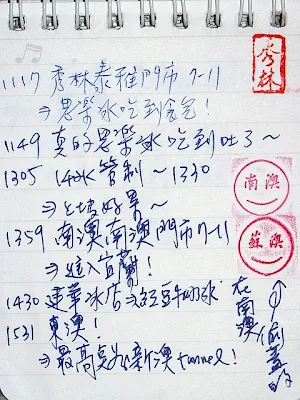 1117 秀林泰雅門市 7-11
秀林
⇒思樂冰吃到飽!
1149 真的思樂冰吃到吐了~
1305 管制~1330
⇒上坡好累~
南澳
1359 南澳南澳門市7-11
⇒進入宜蘭!
蘇澳
1430 建華冰店⇒紅豆牛奶冰
1531 東澳!
⇒最高點為新澳tunnel!
在南澳
偷蓋的